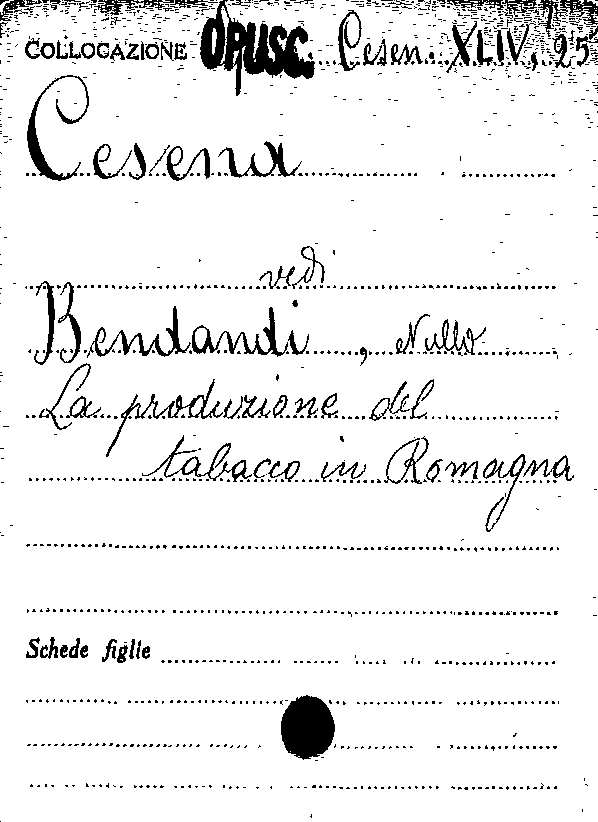 COLLOCAZIONE OPUSC. Cesen. XLIV, 25
Cesena
vedi
Bendandi, Nullo
La produzione del
tabacco in Romagna
Schede figlie